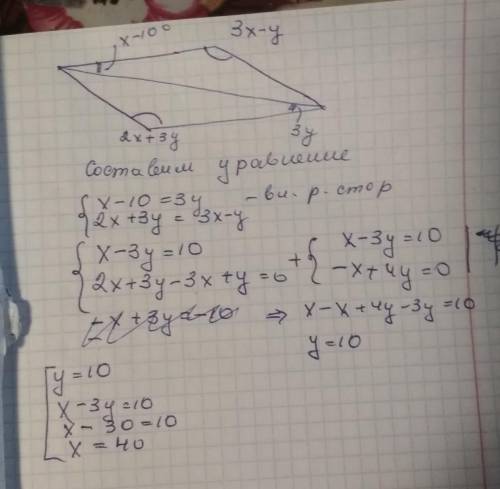 x-10°
3x-y
2x+3y
3y
Составим уравнение
x-10=3y
2x+3y = 3x-y
- вн. р. стор
x-3y=10
2x+3y-3x+y=0
+
x-3y=10
-x+4y=0
-x+3y=-10
⇒ x-x+4y-3y=10
y=10
y=10
x-3y=10
x-30=10
x=40